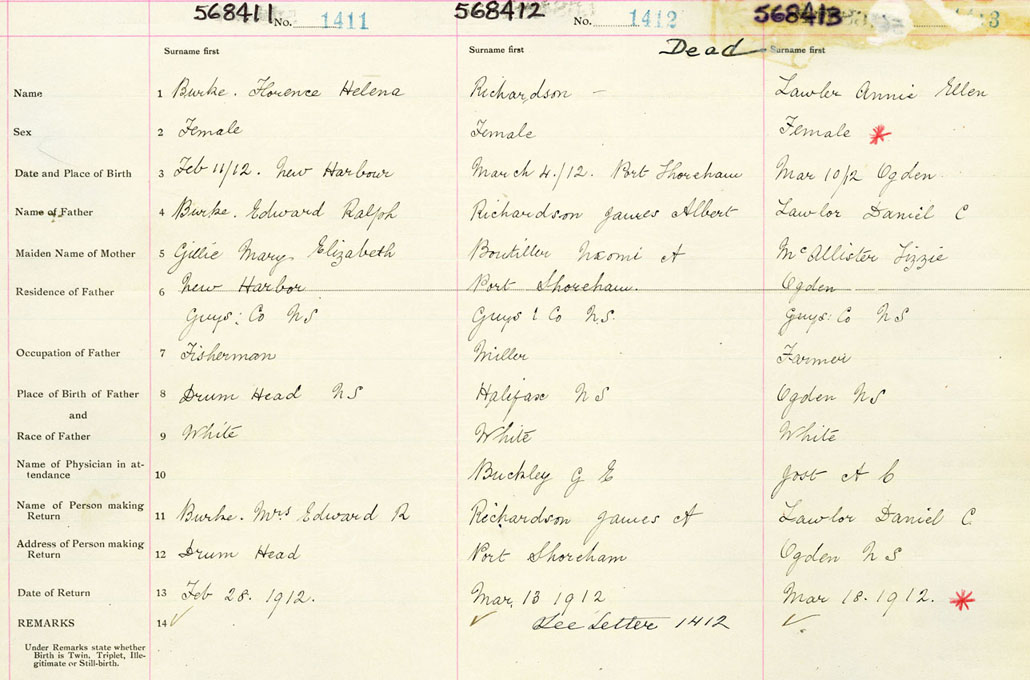 568411 No. 1411 568412 No. 1412 568413
Surname first Surname first Dead Surname first
Name 1 Burke. Florence Helena Richardson – Lawlor Annie Ellen
Sex 2 Female Female Female *
Date and Place of Birth 3 Feb 11/12. New Harbour March 4./12. Port Shoreham Mar 10/12 Ogden
Name of Father 4 Burke. Edward Ralph Richardson James Albert Lawlor Daniel C
Maiden Name of Mother 5 Gillie Mary Elizabeth Boutiller Naomi A McAllister Lizzie
Residence of Father 6 New Harbor Port Shoreham. Ogden
Guys: Co NS Guys: Co NS. Guys: Co NS
Occupation of Father 7 Fisherman Miller Farmer
Place of Birth of Father 8 Drum Head NS Halifax NS Ogden NS
and
Race of Father 9 White White White
Name of Physician in at-
tendance 10 Buckley G E Jost A C
Name of Person making
Return 11 Burke. Mrs Edward R Richardson James A Lawlor Daniel C.
Address of Person making
Return 12 Drum Head Port Shoreham Ogden NS
Date of Return 13 Feb 28. 1912. Mar. 13 1912 Mar 18. 1912. *
REMARKS 14 ✓ ✓ See Letter 1412 ✓
Under Remarks state whether
Birth is Twin, Triplet, Ille-
gitimate or Still-birth.